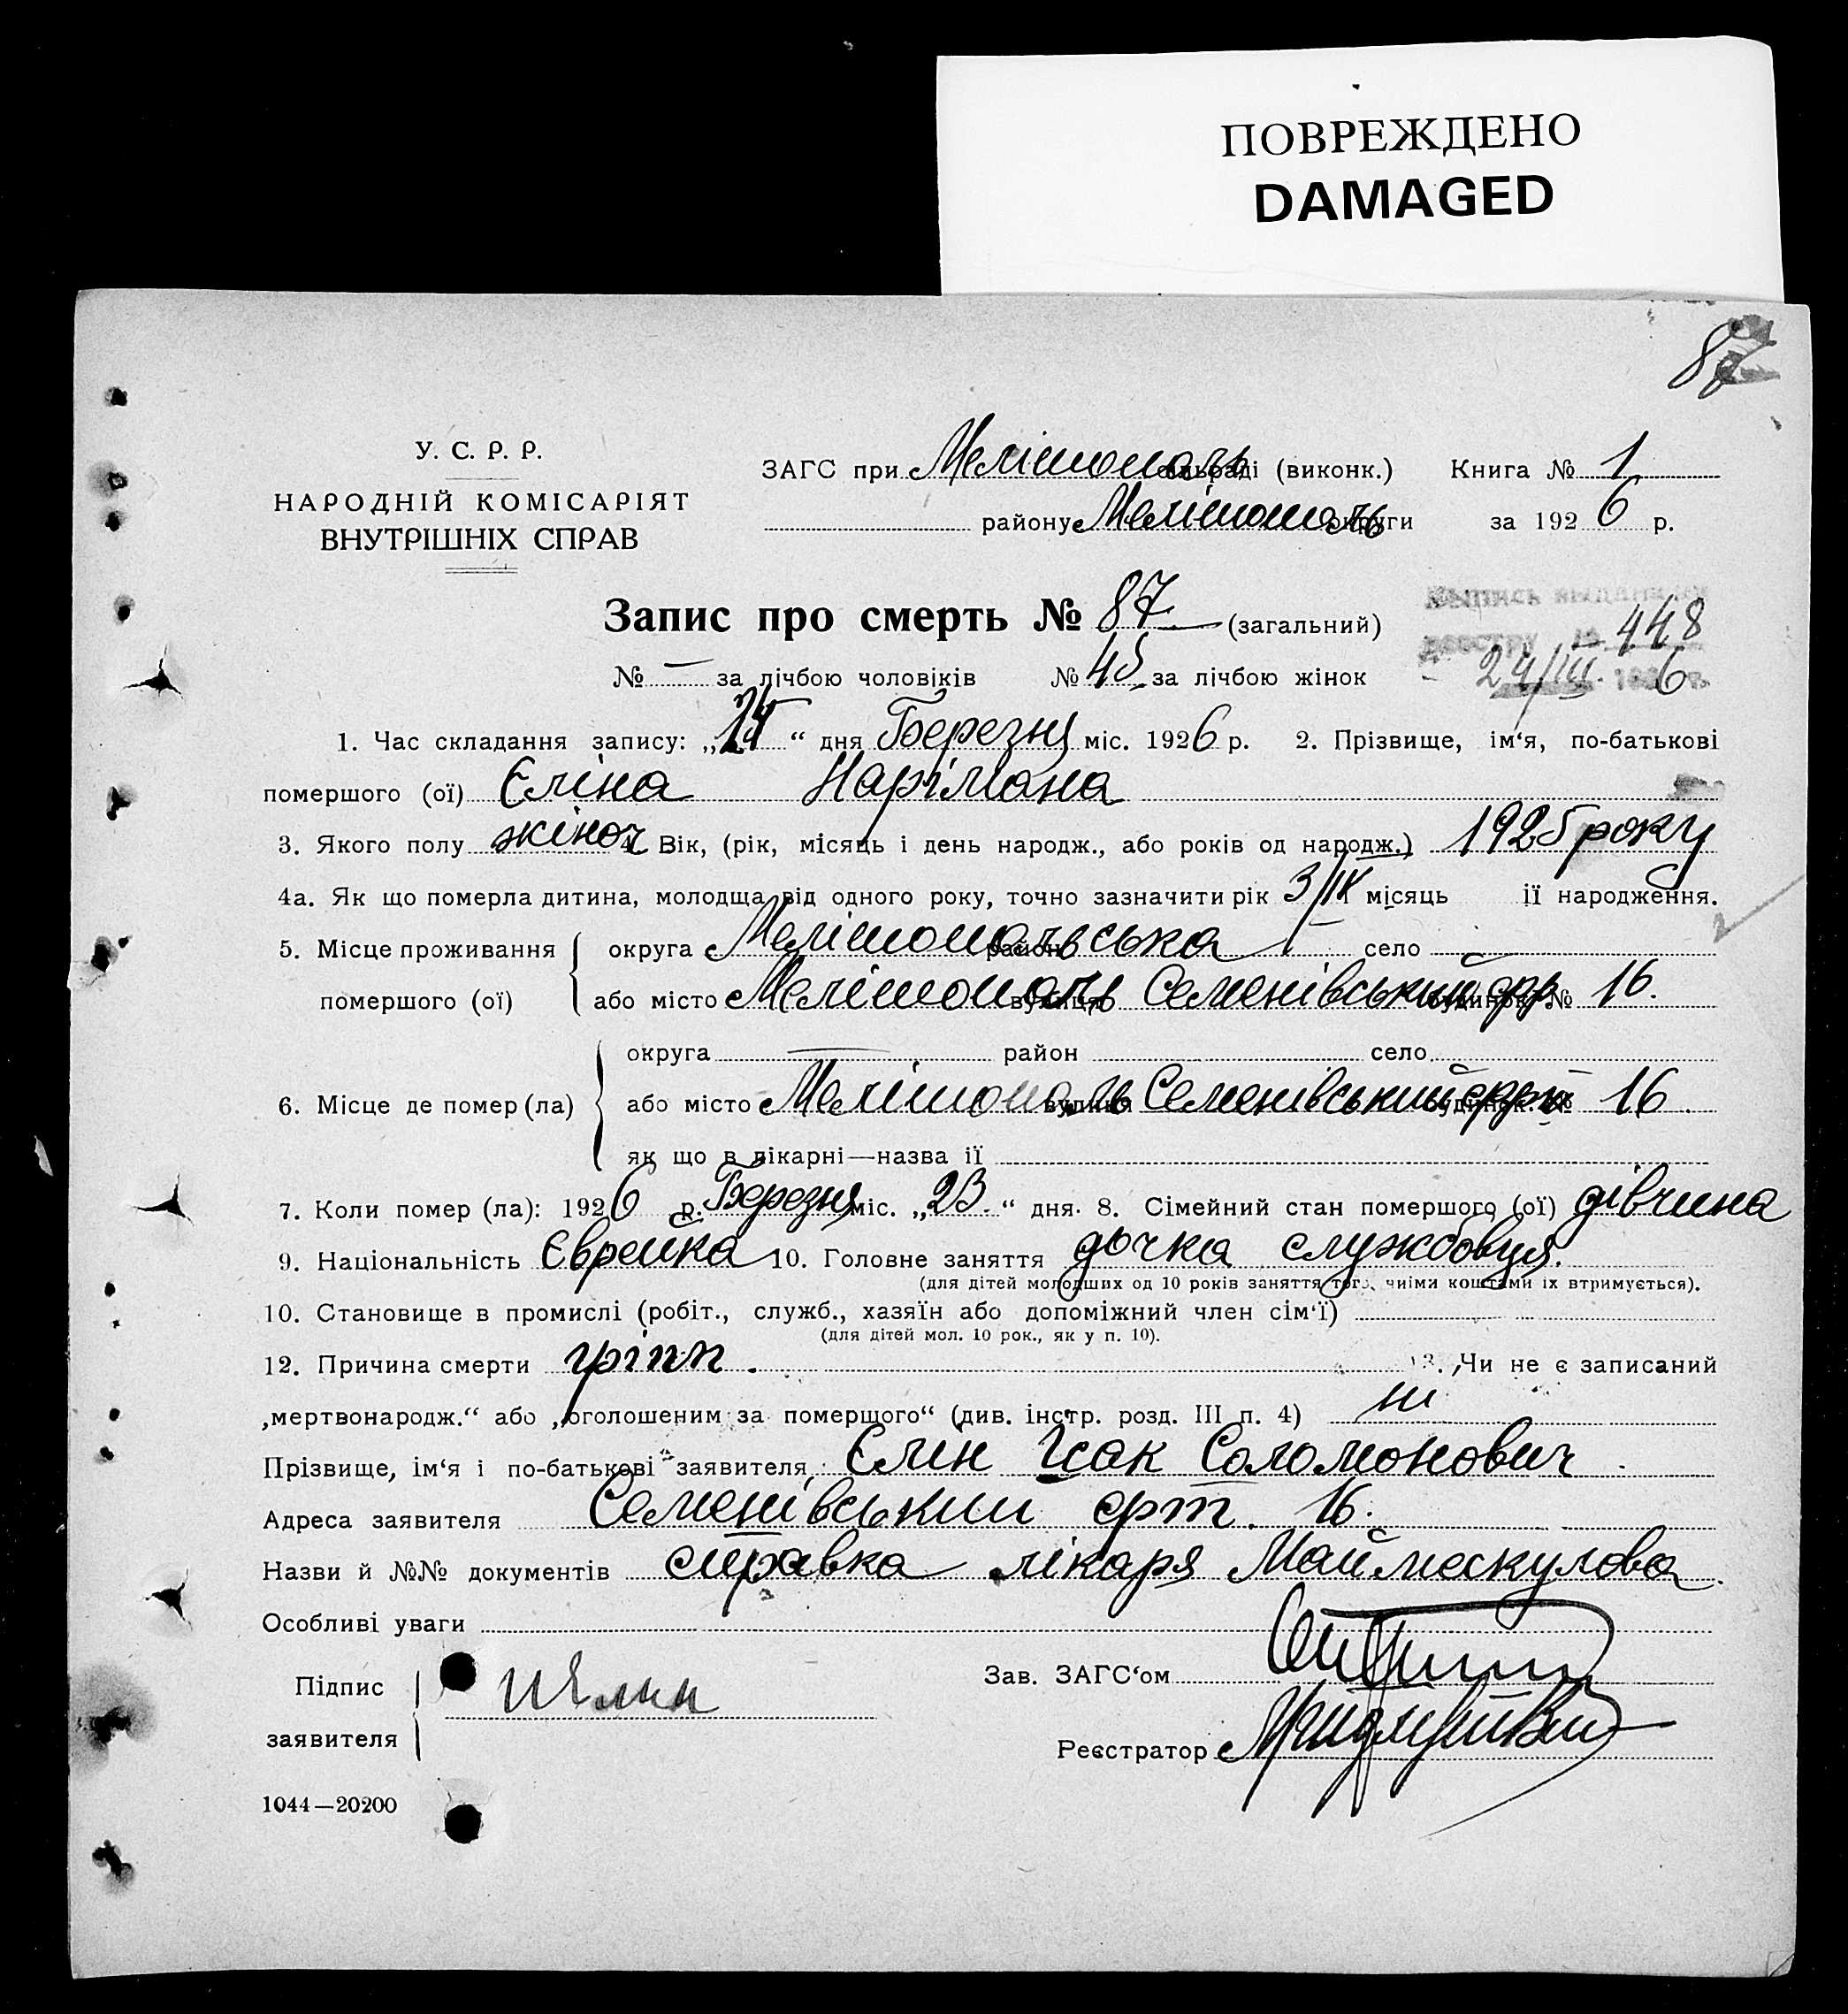 ПОВРЕЖДЕНО
DAMAGED
87
У. С. Р. Р.
НАРОДНІЙ КОМІСАРІЯТ
ВНУТРІШНІХ СПРАВ
ЗАГС при Мелітополь сільраді (виконк.) Книга № 1
району Мелітополь округи за 1926 р.
Запис про смерть № 87 (загальний)
448
№ — за лічбою чоловіків № 45 за лічбою жінок
24/III. 1926 г.
1. Час складання запису: „24“ дня Березня міс. 1926 р. 2. Прізвище, ім‘я, по-батькові
помершого (ої) Єліна Нарімана
3. Якого полу жіноч 4. Вік, (рік, місяць і день народж., або років од народж.) 1925 року
4а. Як що померла дитина, молодща від одного року, точно зазначити рік 3/IX місяць її народження.
5. Місце проживання округа Мелітопольська район село
помершого (ої) або місто Мелітополь вулиця Семенівський будинок № 16.
округа — район село
6. Місце де помер (ла) або місто Мелітополь вулиця Семенівський будинок. № 16.
як що в лікарні—назва ії
7. Коли помер (ла): 1926 р. Березня міс. „23.“ дня. 8. Сімейний стан помершого (ої) дівчина
9. Національність Єврейка 10. Головне заняття дочка службовця.
(для дітей молодших од 10 років заняття того, чиїми коштами їх втримується).
10. Становище в промислі (робіт., служб., хазяїн або допоміжний член сім‘ї)
(для дітей мол. 10 рок., як у п. 10).
12. Причина смерти гріпп. 13. Чи не є записаний
„мертвонародж.“ або „оголошеним за помершого“ (див. інстр. розд. III п. 4) ні
Прізвище, ім‘я і по-батькові заявителя Єлін Ісак Соломонович
Адреса заявителя Семенівський 16.
Назви й №№ документів справка лікаря Маймескулова
Особливі уваги
Підпис
заявителя
Зав. ЗАГС‘ом
Реєстратор
1044—20200